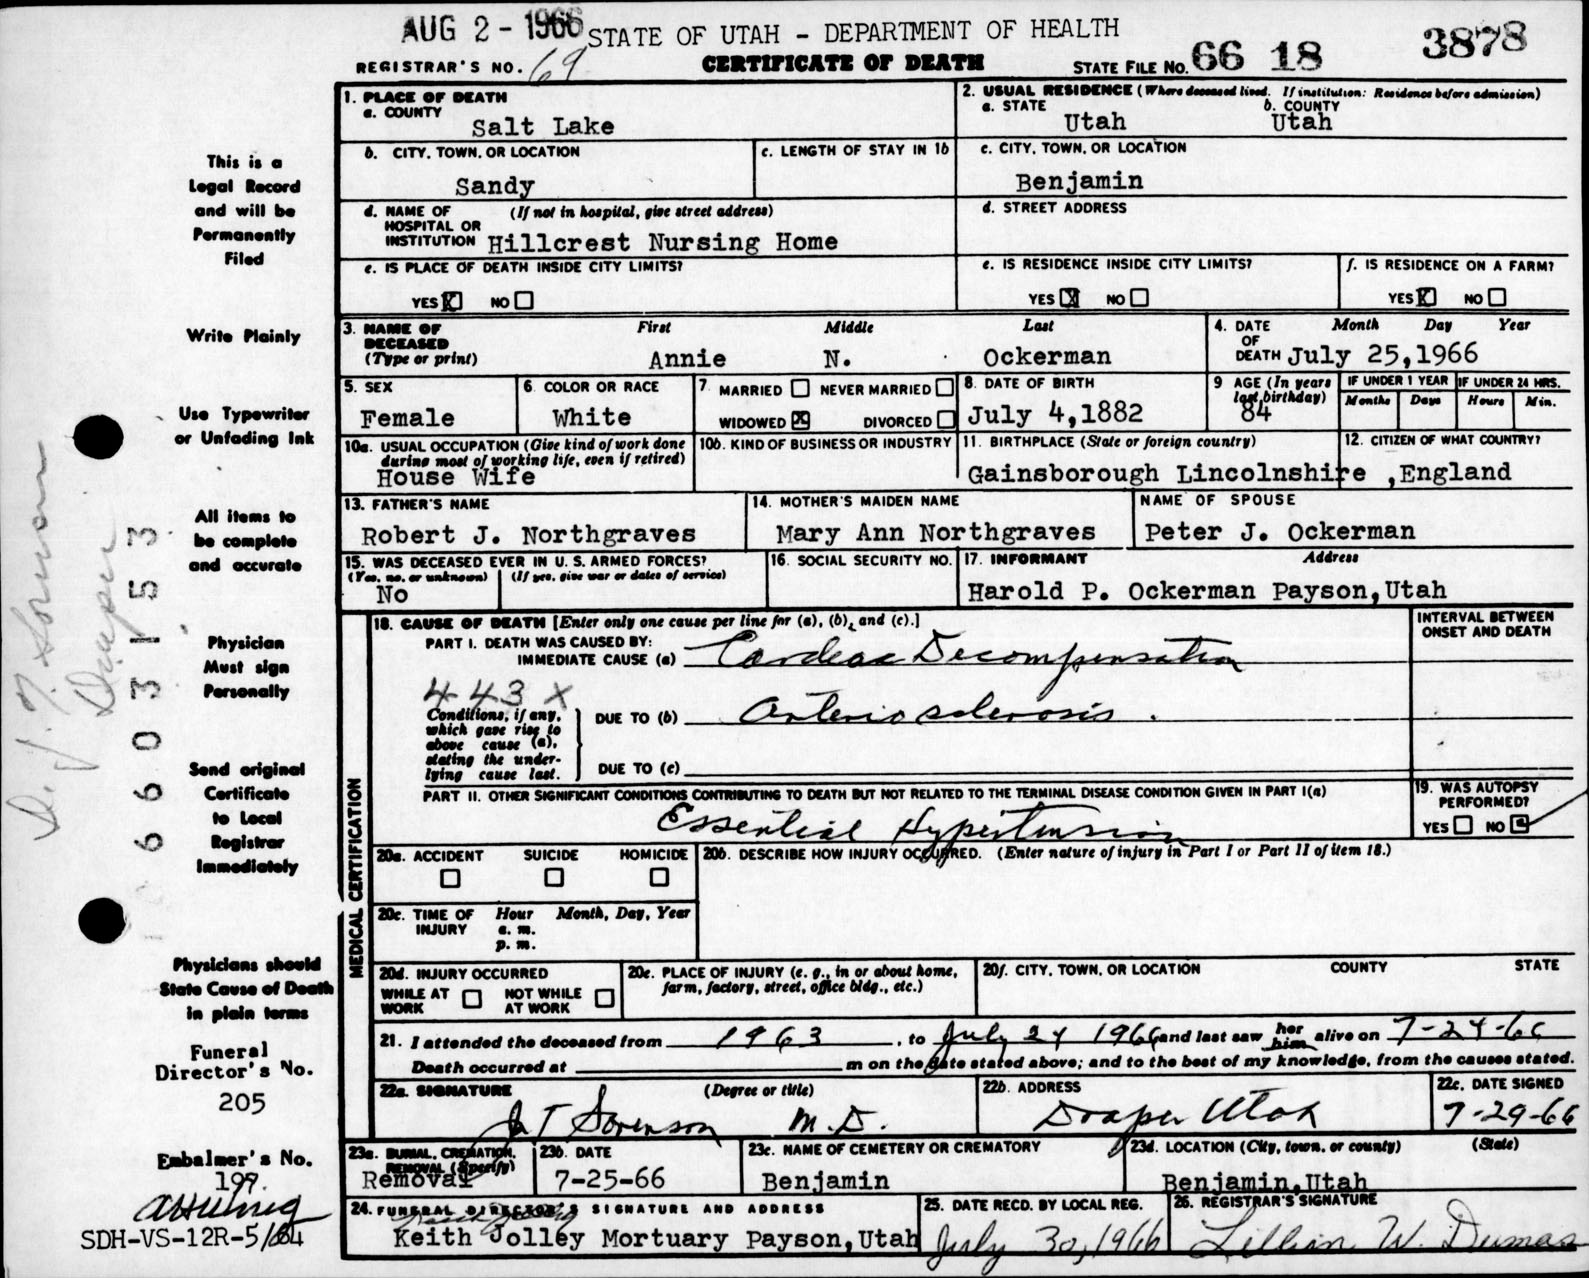 AUG 2 - 1966 STATE OF UTAH - DEPARTMENT OF HEALTH 3878
REGISTRAR'S NO. 69 CERTIFICATE OF DEATH STATE FILE NO. 66 18
1. PLACE OF DEATH
a. COUNTY
Salt Lake
2. USUAL RESIDENCE (Where deceased lived. If institution: Residence before admission)
a. STATE b. COUNTY
Utah Utah
b. CITY, TOWN, OR LOCATION
Sandy
c. LENGTH OF STAY IN 1b
c. CITY, TOWN, OR LOCATION
Benjamin
d. NAME OF HOSPITAL OR INSTITUTION (If not in hospital, give street address)
Hillcrest Nursing Home
d. STREET ADDRESS
e. IS PLACE OF DEATH INSIDE CITY LIMITS?
YES X NO
e. IS RESIDENCE INSIDE CITY LIMITS?
YES X NO
f. IS RESIDENCE ON A FARM?
YES X NO
3. NAME OF DECEASED (Type or print)
First Middle Last
Annie N. Ockerman
4. DATE OF DEATH Month Day Year
July 25,1966
5. SEX
Female
6. COLOR OR RACE
White
7 MARRIED NEVER MARRIED
WIDOWED X DIVORCED
8. DATE OF BIRTH
July 4,1882
9 AGE (In years last birthday)
84
IF UNDER 1 YEAR IF UNDER 24 HRS.
Months Days Hours Min.
10a. USUAL OCCUPATION (Give kind of work done during most of working life, even if retired)
House Wife
10b. KIND OF BUSINESS OR INDUSTRY
11. BIRTHPLACE (State or foreign country)
12. CITIZEN OF WHAT COUNTRY?
Gainsborough Lincolnshire ,England
13. FATHER'S NAME
Robert J. Northgraves
14. MOTHER'S MAIDEN NAME
Mary Ann Northgraves
NAME OF SPOUSE
Peter J. Ockerman
15. WAS DECEASED EVER IN U. S. ARMED FORCES?
(Yes, no, or unknown) (If yes, give war or dates of service)
No
16. SOCIAL SECURITY NO.
17. INFORMANT Address
Harold P. Ockerman Payson,Utah
18. CAUSE OF DEATH [Enter only one cause per line for (a), (b), and (c).]
INTERVAL BETWEEN ONSET AND DEATH
PART I. DEATH WAS CAUSED BY:
IMMEDIATE CAUSE (a) Cardeac Decompensation
443 X
Conditions, if any, which gave rise to above cause (a), stating the underlying cause last.
DUE TO (b) Arteriosclerosis.
DUE TO (c)
PART II. OTHER SIGNIFICANT CONDITIONS CONTRIBUTING TO DEATH BUT NOT RELATED TO THE TERMINAL DISEASE CONDITION GIVEN IN PART I(a)
Essential Hypertension
19. WAS AUTOPSY PERFORMED?
YES NO
MEDICAL CERTIFICATION
20a. ACCIDENT SUICIDE HOMICIDE
20b. DESCRIBE HOW INJURY OCCURRED. (Enter nature of injury in Part I or Part II of item 18.)
20c. TIME OF INJURY Hour Month, Day, Year
a. m.
p. m.
20d. INJURY OCCURRED
WHILE AT WORK NOT WHILE AT WORK
20e. PLACE OF INJURY (e. g., in or about home, farm, factory, street, office bldg., etc.)
20f. CITY, TOWN, OR LOCATION COUNTY STATE
21. I attended the deceased from 1963, to July 24 1966 and last saw her him alive on 7-24-66
Death occurred at m on the date stated above; and to the best of my knowledge, from the causes stated.
22a. SIGNATURE (Degree or title)
J T Sorenson M.D.
22b. ADDRESS
Draper Utah
22c. DATE SIGNED
7-29-66
23a. BURIAL, CREMATION, REMOVAL (Specify)
Removal
23b. DATE
7-25-66
23c. NAME OF CEMETERY OR CREMATORY
Benjamin
23d. LOCATION (City, town, or county) (State)
Benjamin,Utah
24. FUNERAL DIRECTOR'S SIGNATURE AND ADDRESS
Keith Jolley Mortuary Payson,Utah
25. DATE RECD. BY LOCAL REG.
July 30, 1966
26. REGISTRAR'S SIGNATURE
Lillian W. Dumas
This is a
Legal Record
and will be
Permanently
Filed
Write Plainly
Use Typewriter
or Unfading Ink
All items to
be complete
and accurate
Physician
Must sign
Personally
Send original
Certificate
to Local
Registrar
Immediately
Physicians should
State Cause of Death
in plain terms
Funeral
Director's No.
205
Embalmer's No.
197.
SDH-VS-12R-5/64
Draper
6603153